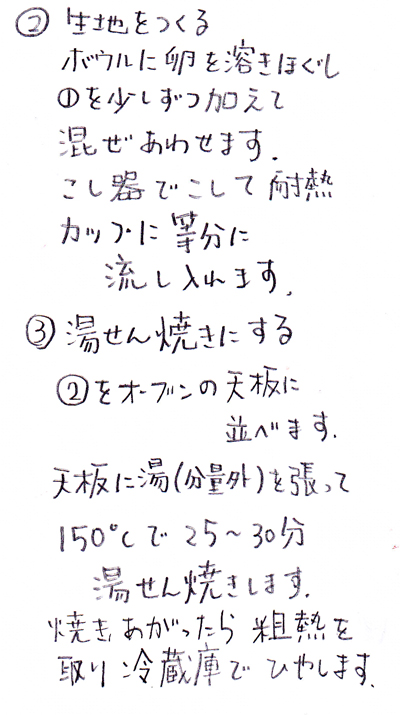 ② 生地をつくる
ボウルに卵を溶きほぐし
①を少しずつ加えて
混ぜあわせます.
こし器でこして耐熱
カップに等分に
流し入れます.
③ 湯せん焼きにする
②をオーブンの天板に
並べます.
天板に湯(分量外)を張って
150℃で25〜30分
湯せん焼きします.
焼きあがったら粗熱を
取り冷蔵庫でひやします.